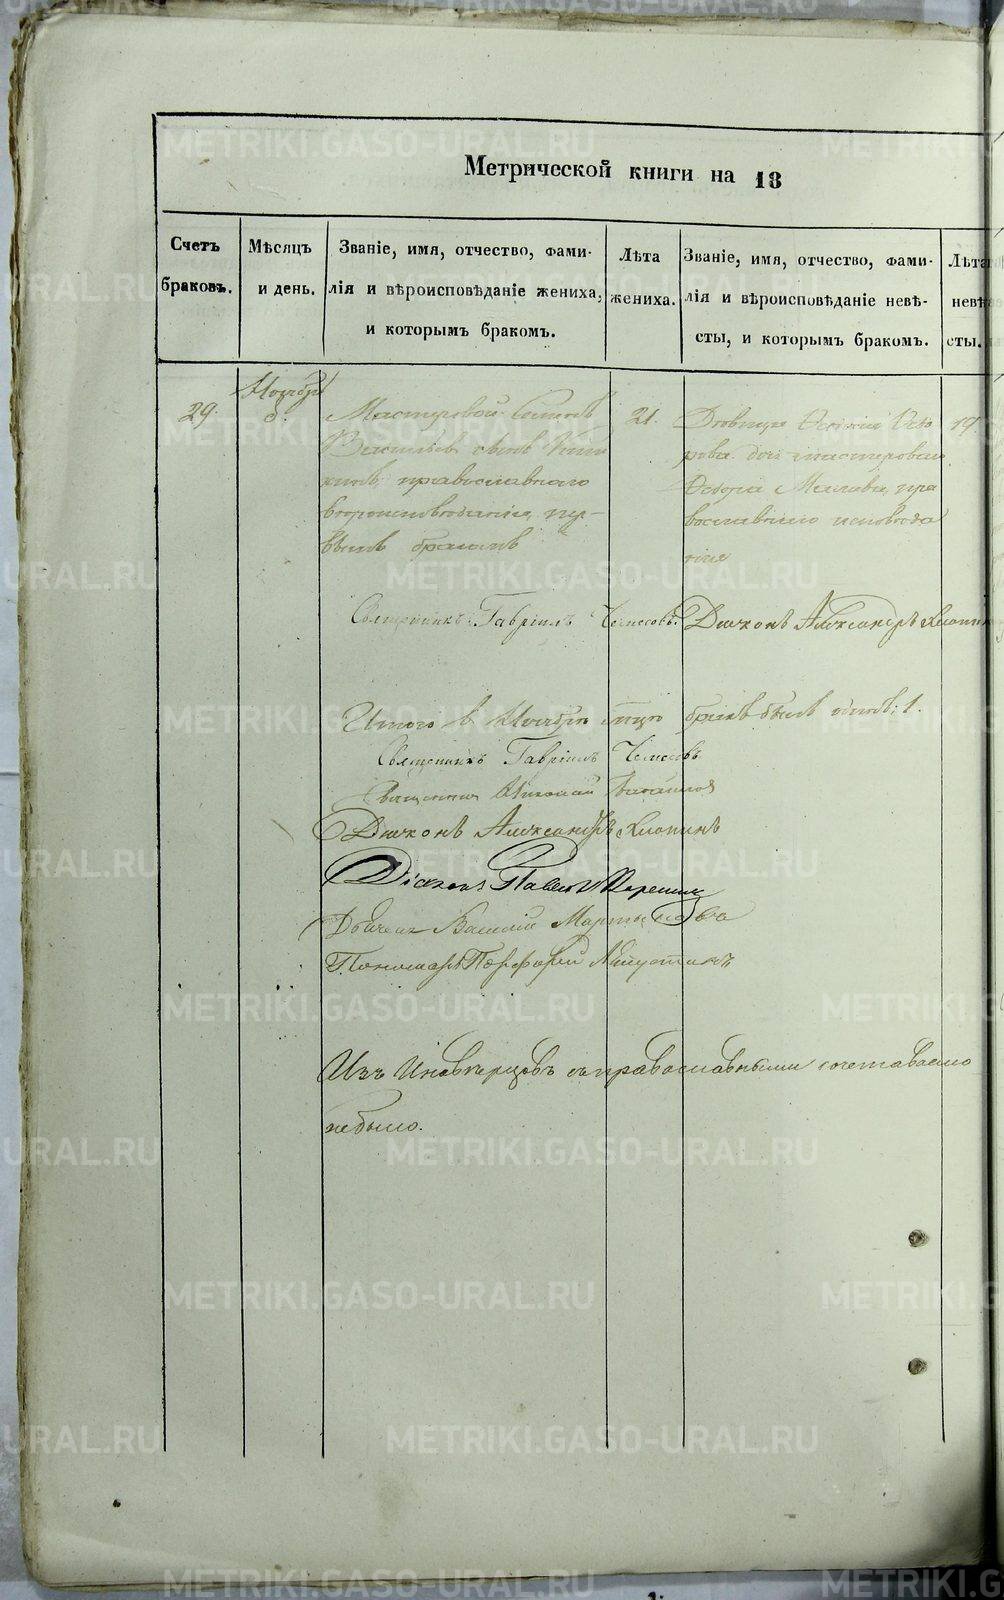 Метрической книги на 18
Счетъ браковъ.
Мѣсяцъ и день.
Званіе, имя, отчество, фами-
лія и вѣроисповѣданіе жениха,
и которымъ бракомъ.
Лѣта жениха.
Званіе, имя, отчество, фами-
лія и вѣроисповѣданіе невѣ-
сты, и которымъ бракомъ.
Лѣта невѣ-
сты.
29.
Ноября
8.
Мастеровой
Васильевъ сынъ
православнаго
вѣроисповѣданія, пер-
вымъ бракомъ
21.
Ѳедо
рова дочь мастероваго
Ѳедора пра
вославнаго исповѣда
нія
19.
Священникъ Гавріилъ
Діаконъ Александръ Хлопинъ
Итого въ Ноябрѣ мцѣ бракъ былъ одинъ: 1.
Священникъ Гавріилъ
Священник Николай
Діаконъ Александръ Хлопинъ
Діаконъ Павелъ
Дьячекъ Василій
Пономарь Порфирій
Изъ Иновѣрцовъ съ православными сочетаваемо
небыло.
METRIKI.GASO-URAL.RU